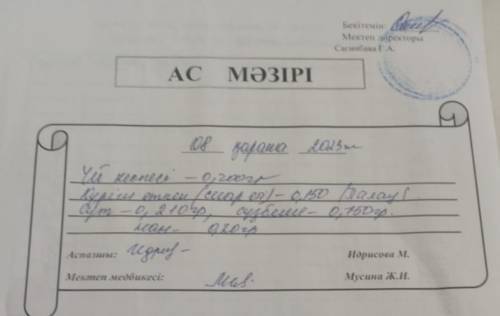 Бекітемін:
Мектеп директоры
Сагинбаева Г.А.
АС МӘЗІРІ
08 қараша 2023ж
Үй кеспесі – 0,200гр
Күріш (сиыр еті) – 0,150 /палау/
Сүт – 0,210гр, – 0,150гр.
нан – 0,20гр
Аспазшы: Идрис – Идрисова М.
Мектеп медбикесі: Мусина Ж.И.